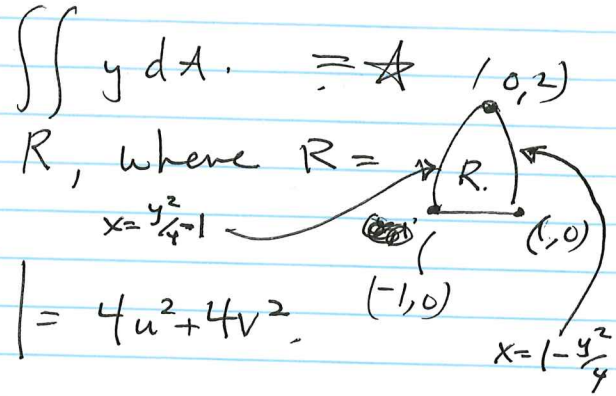 ∬ y dA. = ☆ (0,2)
R, where R = R.
x = y²/4 - 1 (1,0)
(-1,0)
| = 4u² + 4v².
x = 1 - y²/4